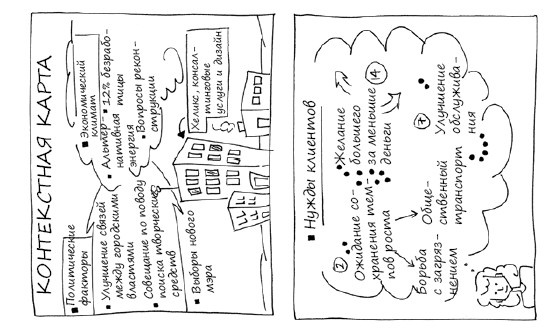 КОНТЕКСТНАЯ КАРТА
Политические
факторы
Улучшение связей
между городскими
властями
Совещание по поводу
поиска творческих
средств
Выборы нового
мэра
Экономический
климат
Альтер-
нативная
энергия
12% безрабо-
тицы
Вопросы рекон-
струкции
Хеликс, консал-
тинговые
услуги и дизайн
Нужды клиентов
Ожидание со-
хранения тем-
пов роста
Желание
большего
за меньшие
деньги
14
Борьба
с загряз-
нением
Обще-
ственный
транспорт
7
Улучшение
обслужива-
ния